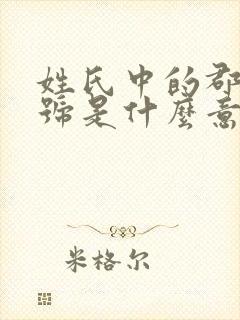 姓氏中的郡
號是什麼意
米格尔